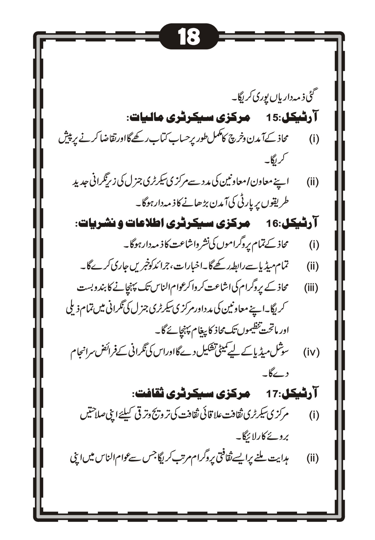 18
گئی ذمہ داریاں پوری کریگا۔
آرٹیکل:15 مرکزی سیکرٹری مالیات:
(i) محاذ کے آمدن و خرچ کا مکمل طور پر حساب کتاب رکھے گا اور تقاضا کرنے پر پیش
کریگا۔
(ii) اپنے معاون/معاونین کی مدد سے مرکزی سیکرٹری جنرل کی زیرنگرانی جدید
طریقوں پر پارٹی کی آمدن بڑھانے کا ذمہ دار ہوگا۔
آرٹیکل:16 مرکزی سیکرٹری اطلاعات و نشریات:
(i) محاذ کے تمام پروگراموں کی نشر و اشاعت کا ذمہ دار ہوگا۔
(ii) تمام میڈیا سے رابطہ رکھے گا۔ اخبارات، جرائد کو خبریں جاری کرے گا۔
(iii) محاذ کے پروگرام کی اشاعت کروا کر عوام الناس تک پہنچانے کا بندوبست
کریگا۔ اپنے معاونین کی مدد اور مرکزی سیکرٹری جنرل کی نگرانی میں تمام ذیلی
اور ماتحت تنظیموں تک محاذ کا پیغام پہنچائے گا۔
(iv) سوشل میڈیا کے لیے کمیٹی تشکیل دے گا اور اس کی نگرانی کے فرائض سرانجام
دے گا۔
آرٹیکل:17 مرکزی سیکرٹری ثقافت:
(i) مرکزی سیکرٹری ثقافت علاقائی ثقافت کی ترویج و ترقی کیلئے اپنی صلاحتیں
بروئے کار لائیگا۔
(ii) ہدایت ملنے پر ایسے ثقافتی پروگرام مرتب کریگا جس سے عوام الناس میں اپنی